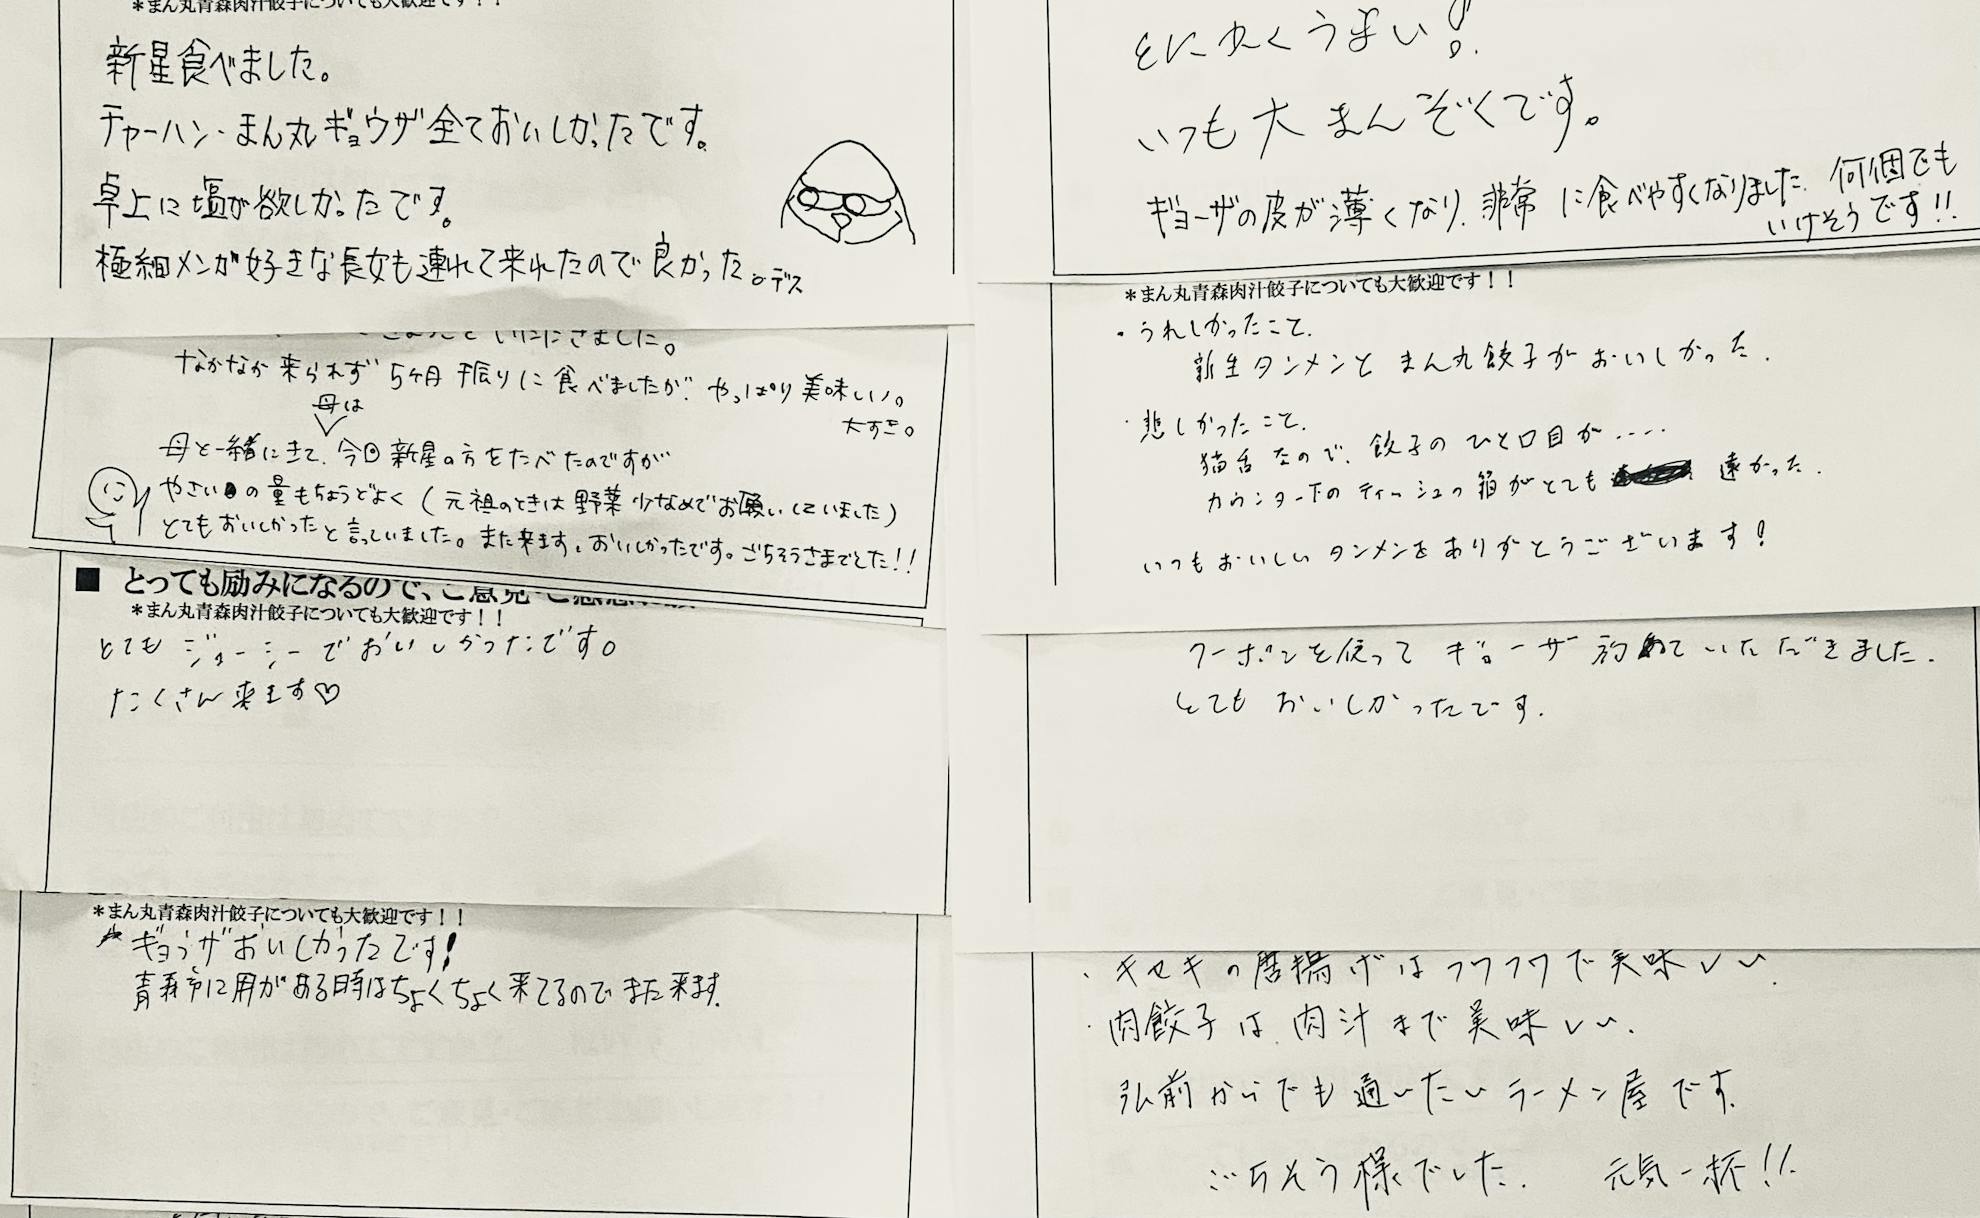 *まん丸青森肉汁餃子についても大歓迎です！！
新星食べました。
チャーハン・まん丸ギョウザ全ておいしかったです。
卓上に塩が欲しかったです。
極細メンが好きな長女も連れて来れたので良かった。デス
いただきました。
なかなか来られず5ヶ月振りに食べましたが、やっぱり美味しい。
大すき。
母は
母と一緒にきて、今日新星の方をたべたのですが
やさいの量もちょうどよく(元祖のときは野菜少なめでお願いしていました)
とてもおいしかったと言っていました。また来ます。おいしかったです。ごちそうさまでした!!
■ とっても励みになるので、ご意見・ご感想
*まん丸青森肉汁餃子についても大歓迎です！！
とてもジューシーでおいしかったです。
たくさん来ます♡
*まん丸青森肉汁餃子についても大歓迎です！！
ギョウザおいしかったです!
青森市に用がある時はちょくちょく来てるのでまた来ます。
とにかくうまい!
いつも大まんぞくです。
ギョーザの皮が薄くなり、非常に食べやすくなりました。何個でも
いけそうです!!
*まん丸青森肉汁餃子についても大歓迎です！！
・うれしかったこと、
新生タンメンとまん丸餃子がおいしかった。
・悲しかったこと、
猫舌なので、餃子のひと口目が‥‥
カウンター下のティッシュの箱がとても遠かった。
いつもおいしいタンメンをありがとうございます!
クーポンを使ってギョーザ初めていただきました。
とてもおいしかったです。
・キセキの唐揚げはフワフワで美味しい。
・肉餃子は肉汁まで美味しい。
弘前からでも通いたいラーメン屋です。
ごちそう様でした。 元気一杯!!